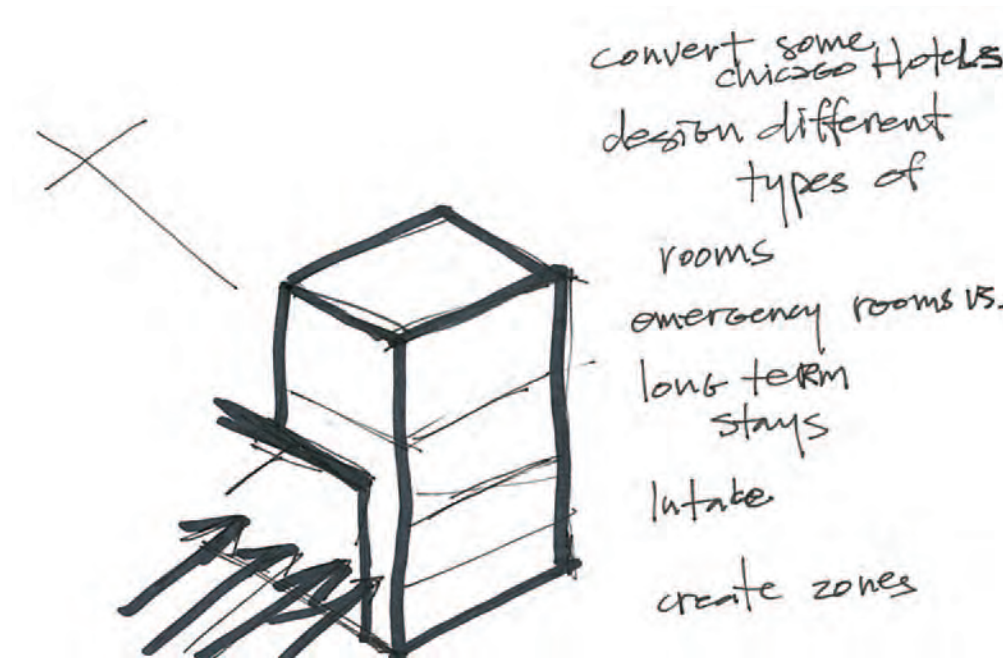 convert some
chicago Hotels
design different
types of
rooms
emergency rooms vs.
long term
stays
Intake
create zones